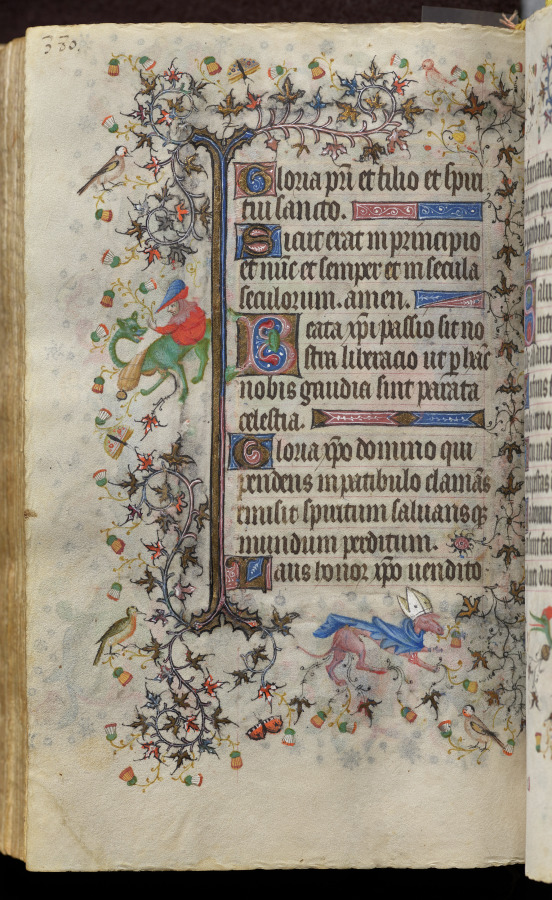 330.
Gloria pri et filio et spiri
tui sancto.
Sicut erat in principio
et nuc et semper et in secula
seculorum. amen.
Beata xpi passio sit no
stra liberacio ut p hac
nobis gaudia sint parata
celestia.
Gloria xpo domino qui
pendens in patibulo clamas
emisit spiritum saluans q
mundum perditum.
Laus honor xpo uendito